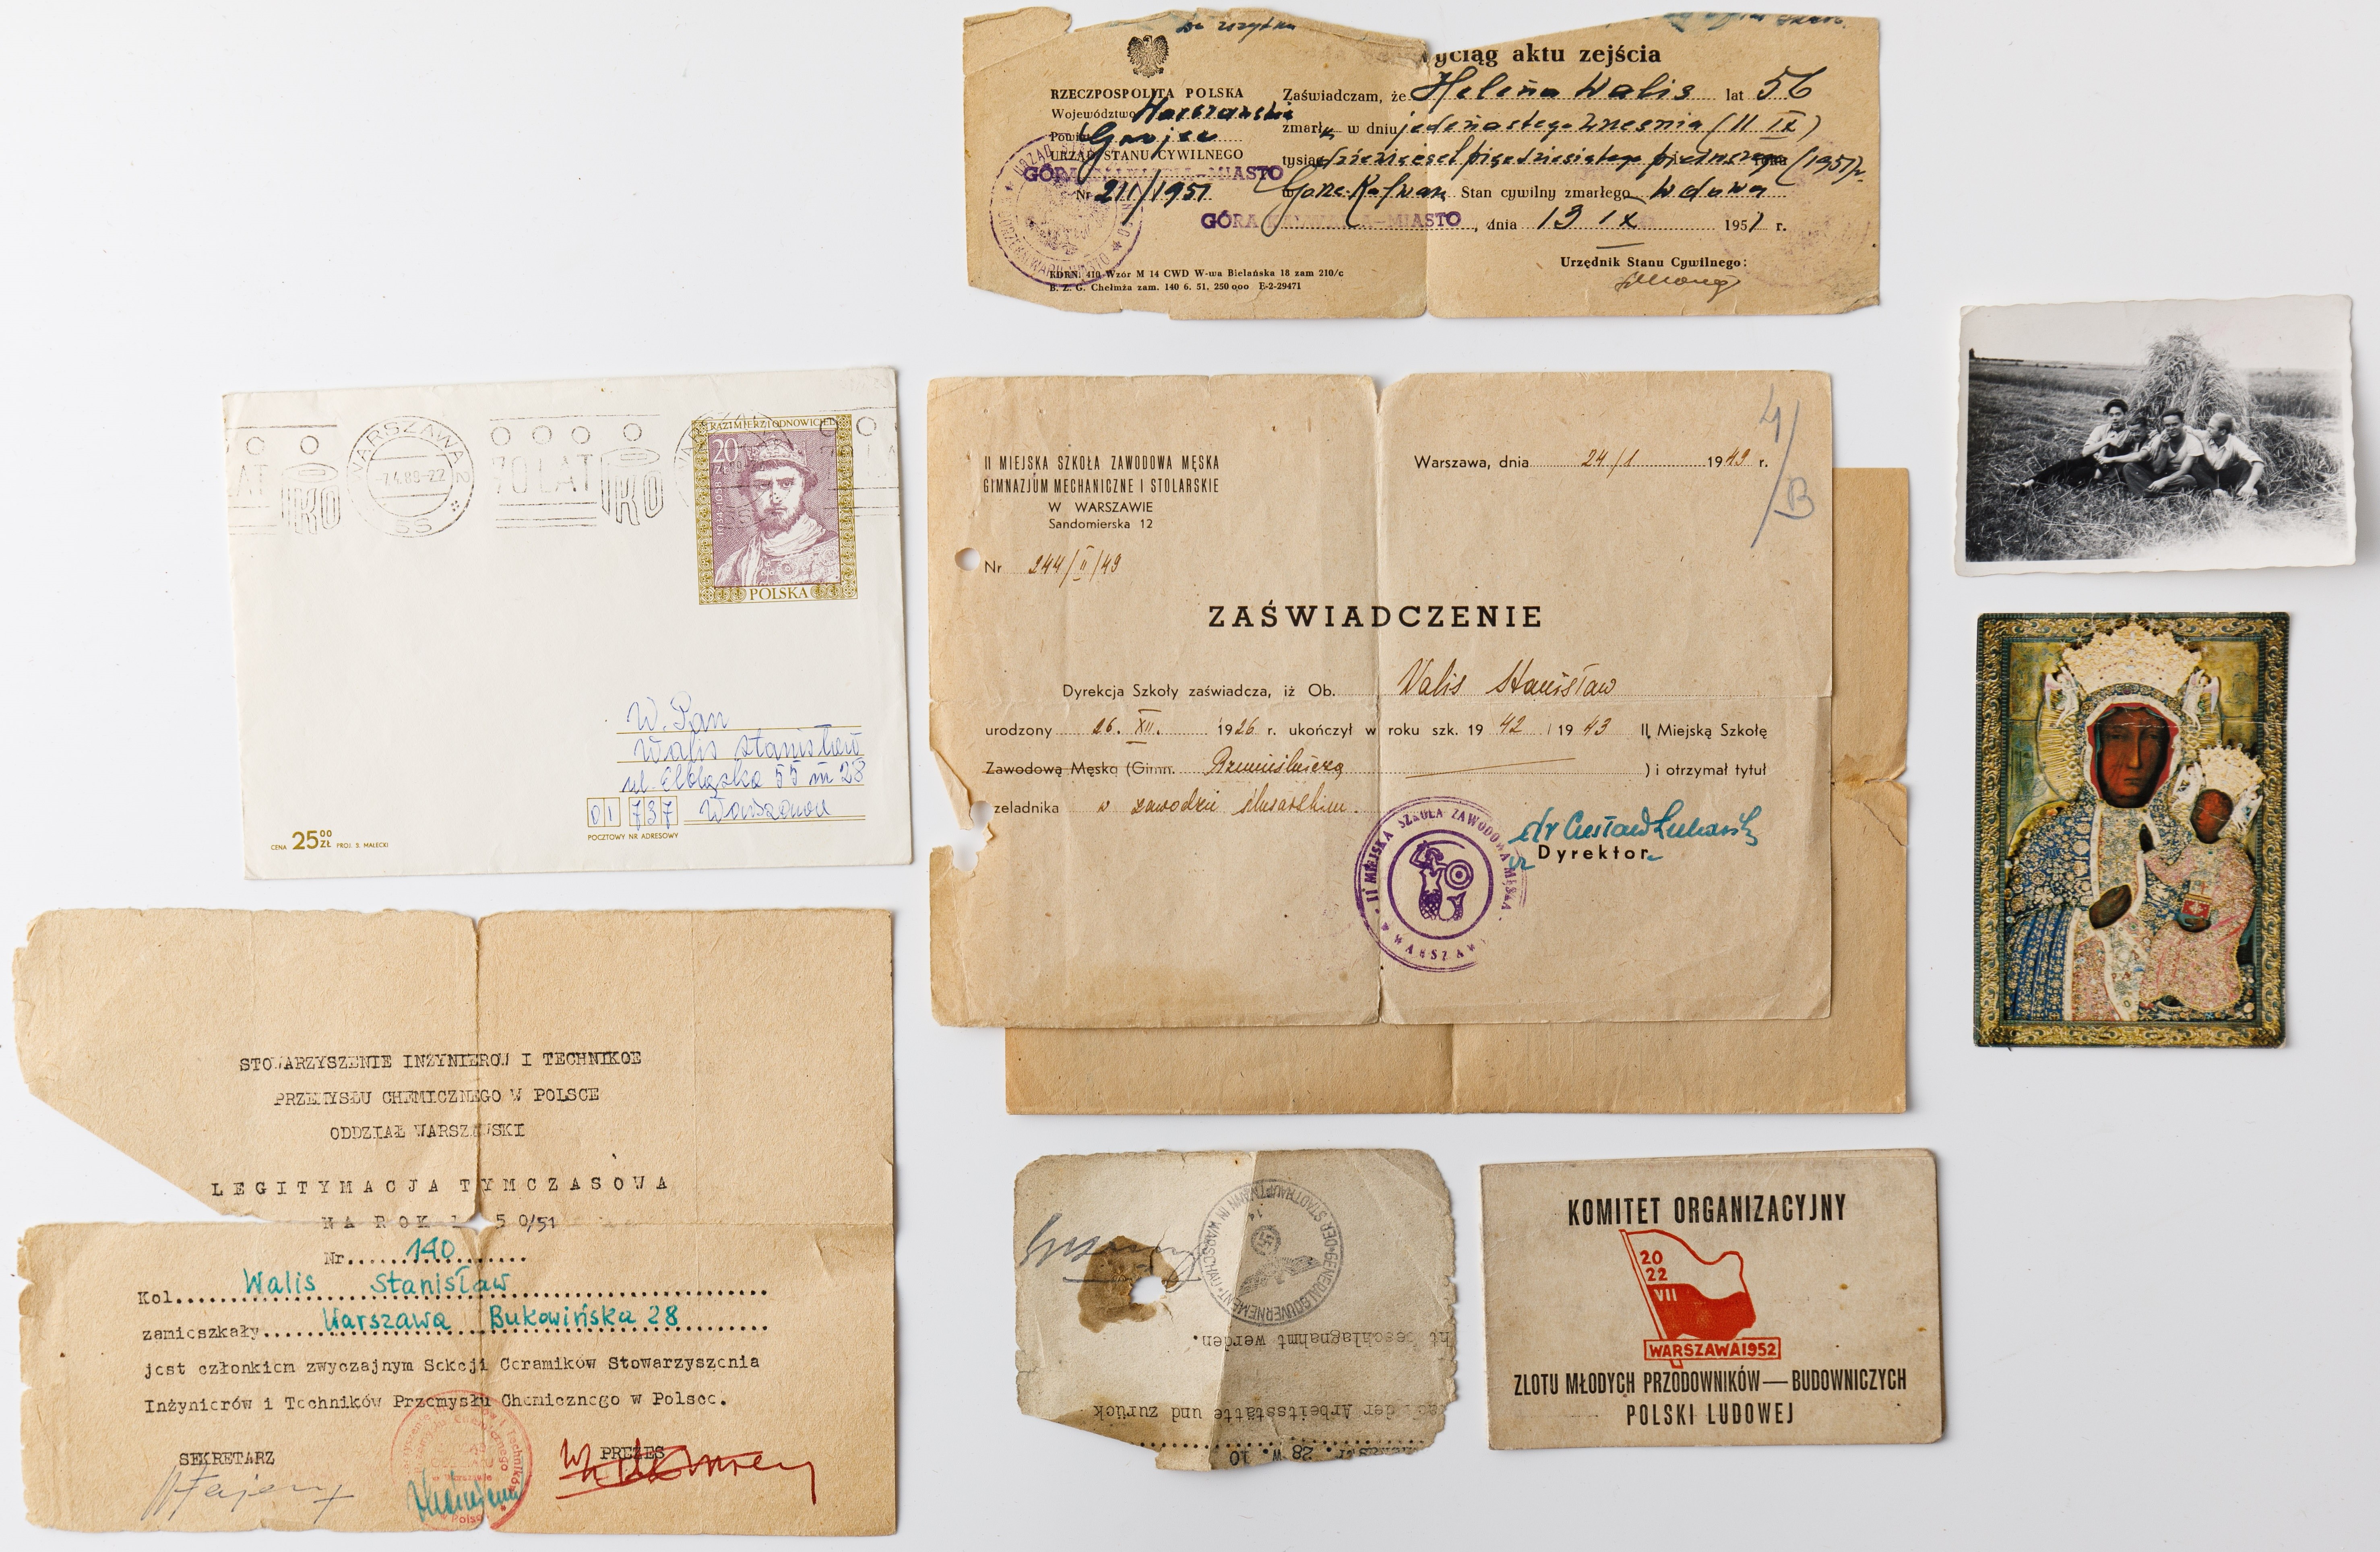 wyciąg aktu zejścia
RZECZPOSPOLITA POLSKA
Województwo Warszawskie
Powiat Grójec
URZĄD STANU CYWILNEGO
GÓRA KALWARIA-MIASTO
Nr 211/1951
Zaświadczam, że Helena Walis lat 56
zmarła w dniu jedenastego września (11 IX)
tysiąc dziewięćset pięćdziesiątego pierwszego roku (1951) r.
w Górze Kalwarii Stan cywilny zmarłego Wdowa
GÓRA KALWARIA-MIASTO, dnia 13 IX 1951 r.
Urzędnik Stanu Cywilnego:
KDRN: 410 Wzór M 14 CWD W-wa Bielańska 18 zam 210/c
B. Z. G. Chełmża zam. 140 6. 51. 250 000 E-2-29471
WARSZAWA 2
-7.4.88-22
55
70 LAT
PKO
KAZIMIERZ I ODNOWICIEL
20 ZŁ
1034-1058
POLSKA
W. Pan
Walis Stanisław
ul. Elbląska 55 m 28
01 737 Warszawa
POCZTOWY NR ADRESOWY
CENA 25 00 ZŁ PROJ. S. MAŁECKI
II MIEJSKA SZKOŁA ZAWODOWA MĘSKA
GIMNAZJUM MECHANICZNE I STOLARSKIE
W WARSZAWIE
Sandomierska 12
Nr 244/II/49
Warszawa, dnia 24/1 1949 r.
4/B
ZAŚWIADCZENIE
Dyrekcja Szkoły zaświadcza, iż Ob. Valis Stanisław
urodzony 26. XII. 1926 r. ukończył w roku szk. 1942/1943 II Miejską Szkołę
Zawodową Męską (Gimn. Rzemieślniczą ) i otrzymał tytuł
zeladnika w zawodzie ślusarskim.
Dyrektor
II MIEJSKA SZKOŁA ZAWODOWA MĘSKA
WARSZAWA
STOWARZYSZENIE INŻYNIEROW I TECHNIKOE
PRZEMYSŁU CHEMICZNEGO W POLSCE
ODDZIAŁ WARSZAWSKI
LEGITYMACJA TYMCZASOWA
NA ROK 1 50/51
Nr. 140
Kol. Walis Stanisław
zamieszkały Warszawa Bukowińska 28
jest członkiem zwyczajnym Sekcji Ceramików Stowarzyszenia
Inżynierów i Techników Przemysłu Chemicznego w Polsce.
SEKRETARZ
PREZES
GENERALGOUVERNEMENT
DER STADTHAUPTMANN IN WARSCHAU
14
ht beschlagnahmt werden.
der Arbeitsstätte und zurück
28 w. 10
KOMITET ORGANIZACYJNY
20
22
VII
WARSZAWA 1952
ZLOTU MŁODYCH PRZODOWNIKÓW — BUDOWNICZYCH
POLSKI LUDOWEJ